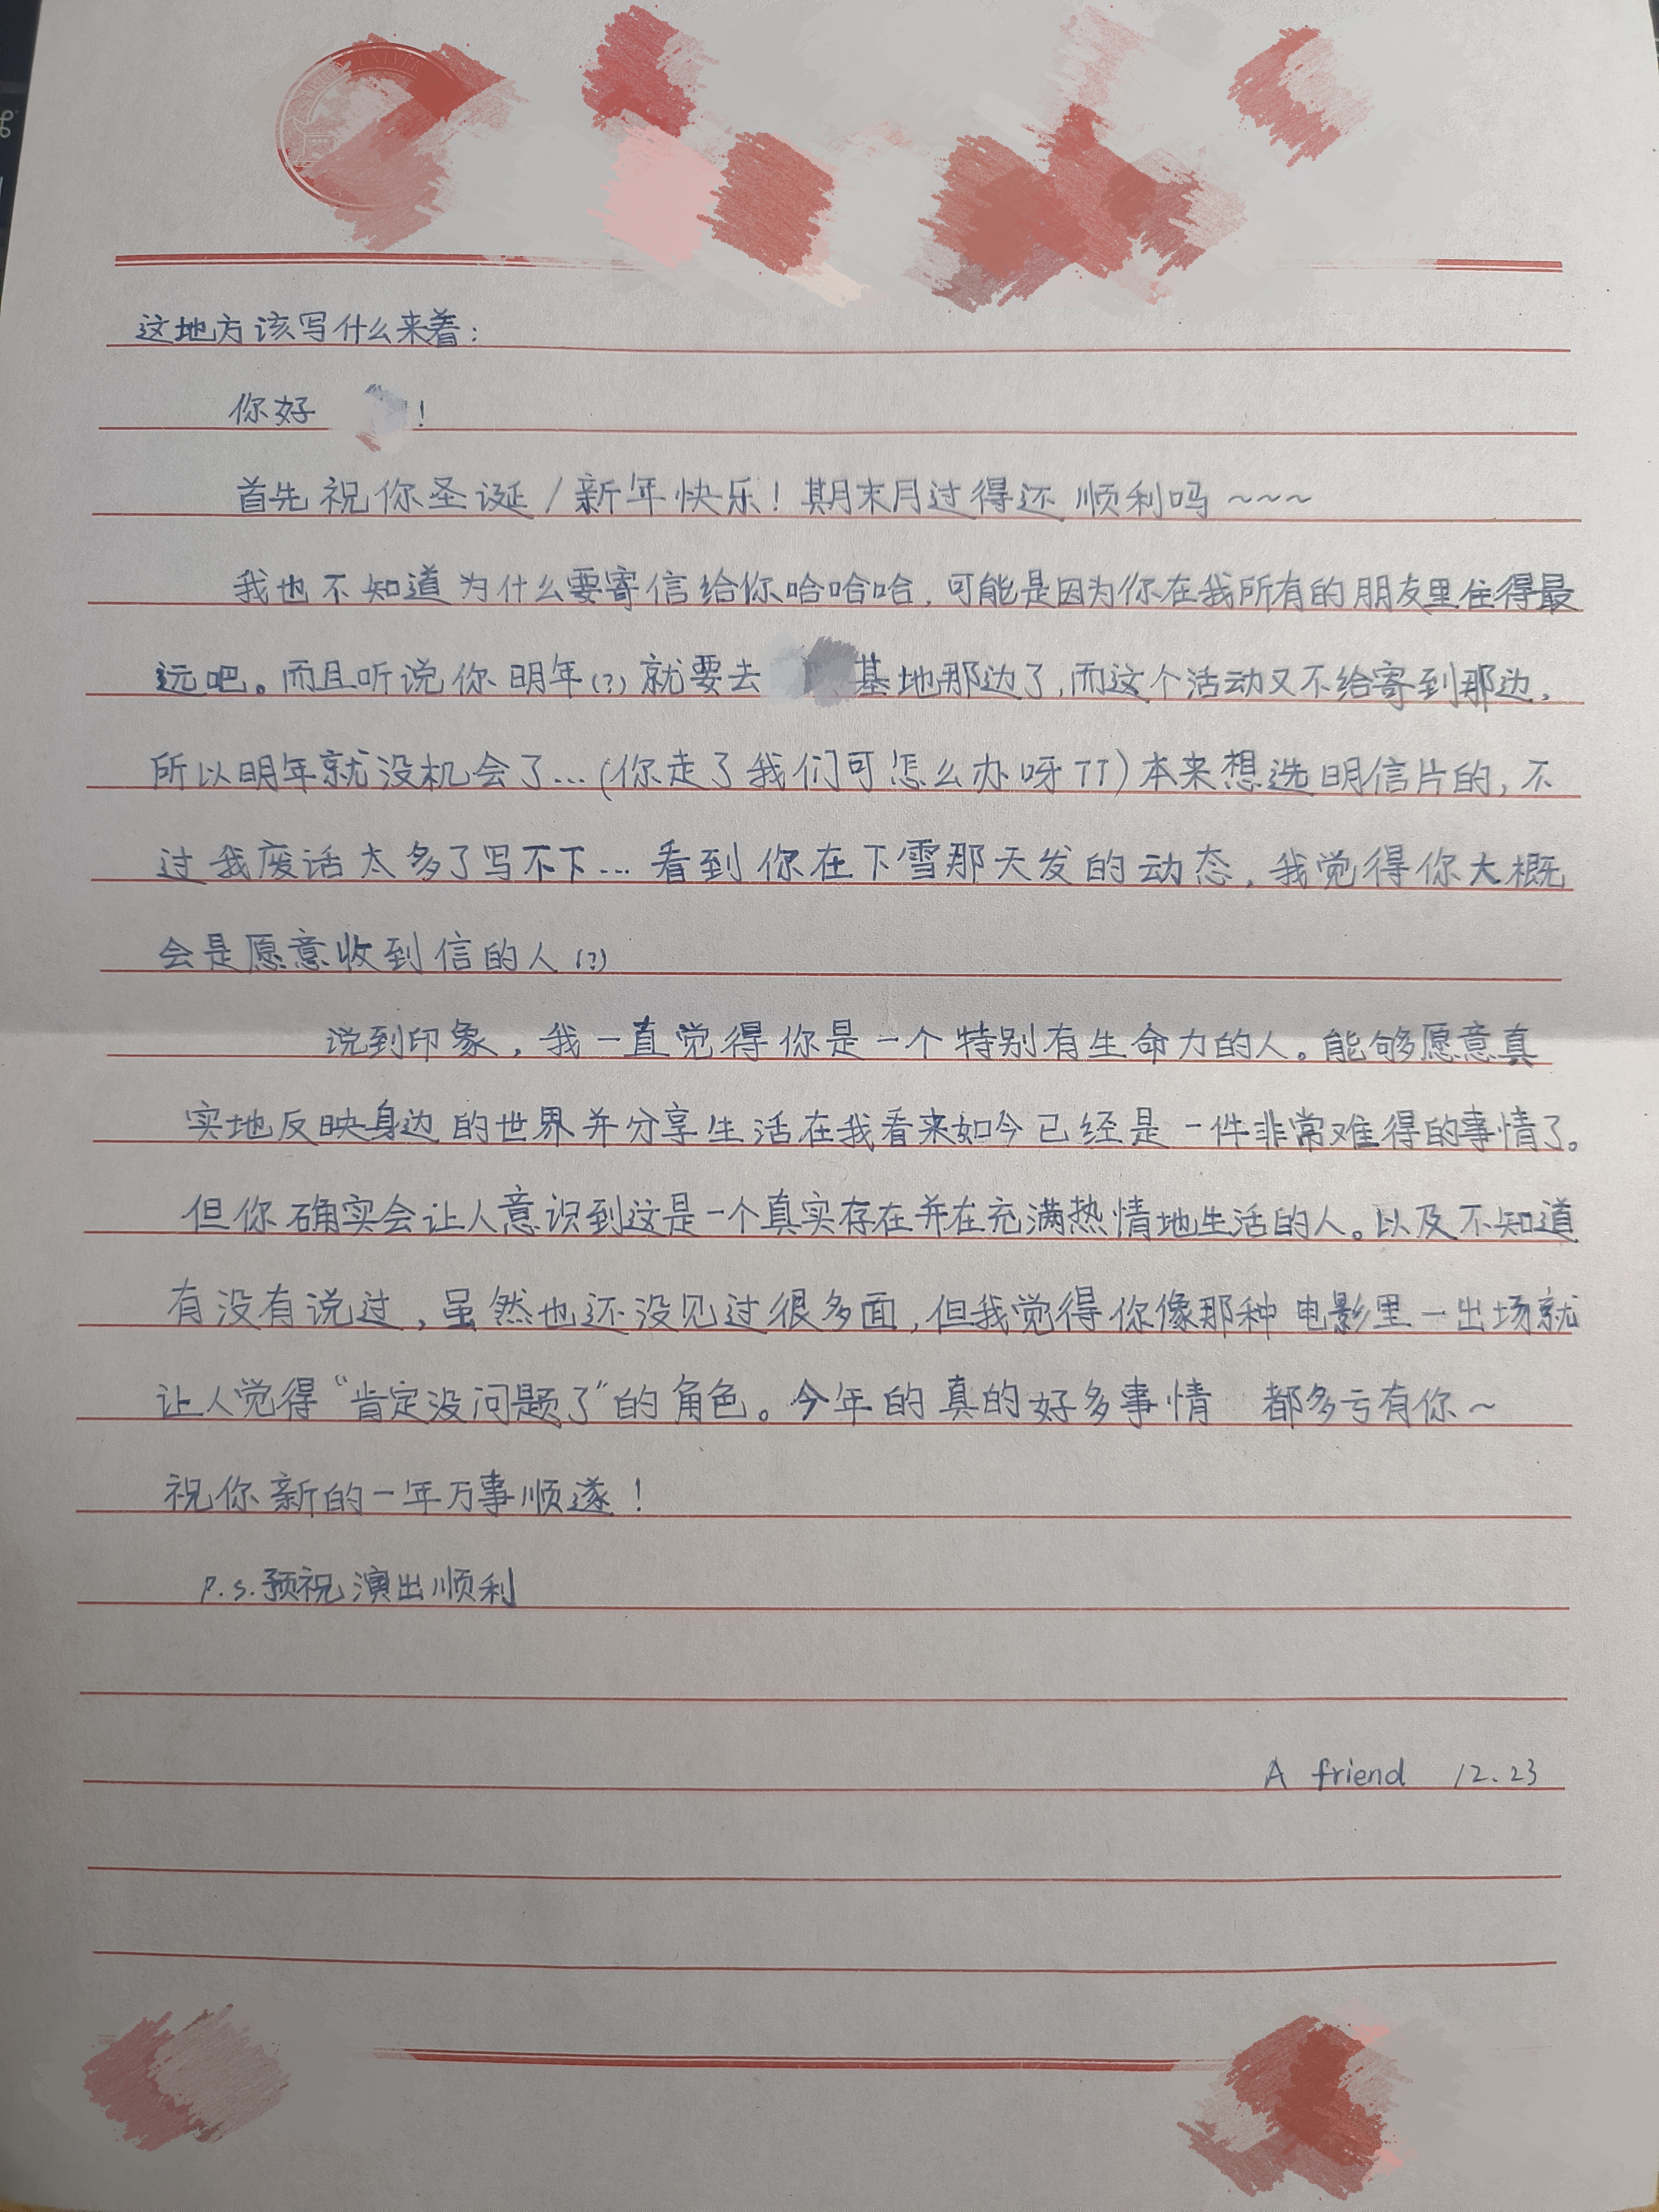 这地方该写什么来着：
你好 ！
首先祝你圣诞/新年快乐！期末月过得还顺利吗~~~
我也不知道为什么要寄信给你哈哈哈，可能是因为你在我所有的朋友里住得最
远吧。而且听说你明年(?)就要去 基地那边了，而这个活动又不给寄到那边，
所以明年就没机会了...(你走了我们可怎么办呀TT)本来想选明信片的，不
过我废话太多了写不下...看到你在下雪那天发的动态，我觉得你大概
会是愿意收到信的人(?)
说到印象，我一直觉得你是一个特别有生命力的人。能够愿意真
实地反映身边的世界并分享生活在我看来如今已经是一件非常难得的事情了。
但你确实会让人意识到这是一个真实存在并在充满热情地生活的人。以及不知道
有没有说过，虽然也还没见过很多面，但我觉得你像那种电影里一出场就
让人觉得“肯定没问题了”的角色。今年的真的好多事情 都多亏有你~
祝你新的一年万事顺遂！
P.S.预祝演出顺利
A friend 12.23